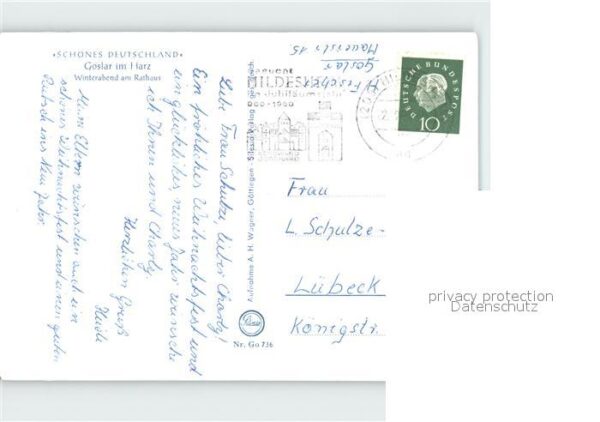 •SCHÖNES DEUTSCHLAND•
Goslar im Harz
Winterabend am Rathaus
Liebe Frau Schulze, lieber Charly!
Ein fröhliches Weihnachtsfest und
ein glückliches, neues Jahr wünsche
ich Ihnen und Charly.
Herzlichen Gruß
Heidi
Meine Eltern wünschen auch ein
schönes Weihnachtsfest und einen guten
Rutsch ins Neue Jahr.
Aufnahme A. H. Wagner, Göttingen
Nr. Go 736
Goslar
Mauerstr 15
HILDESHEIM
DEUTSCHE BUNDESPOST
10
Frau
L. Schulze-
Lübeck
Königstr.
privacy protection
Datenschutz